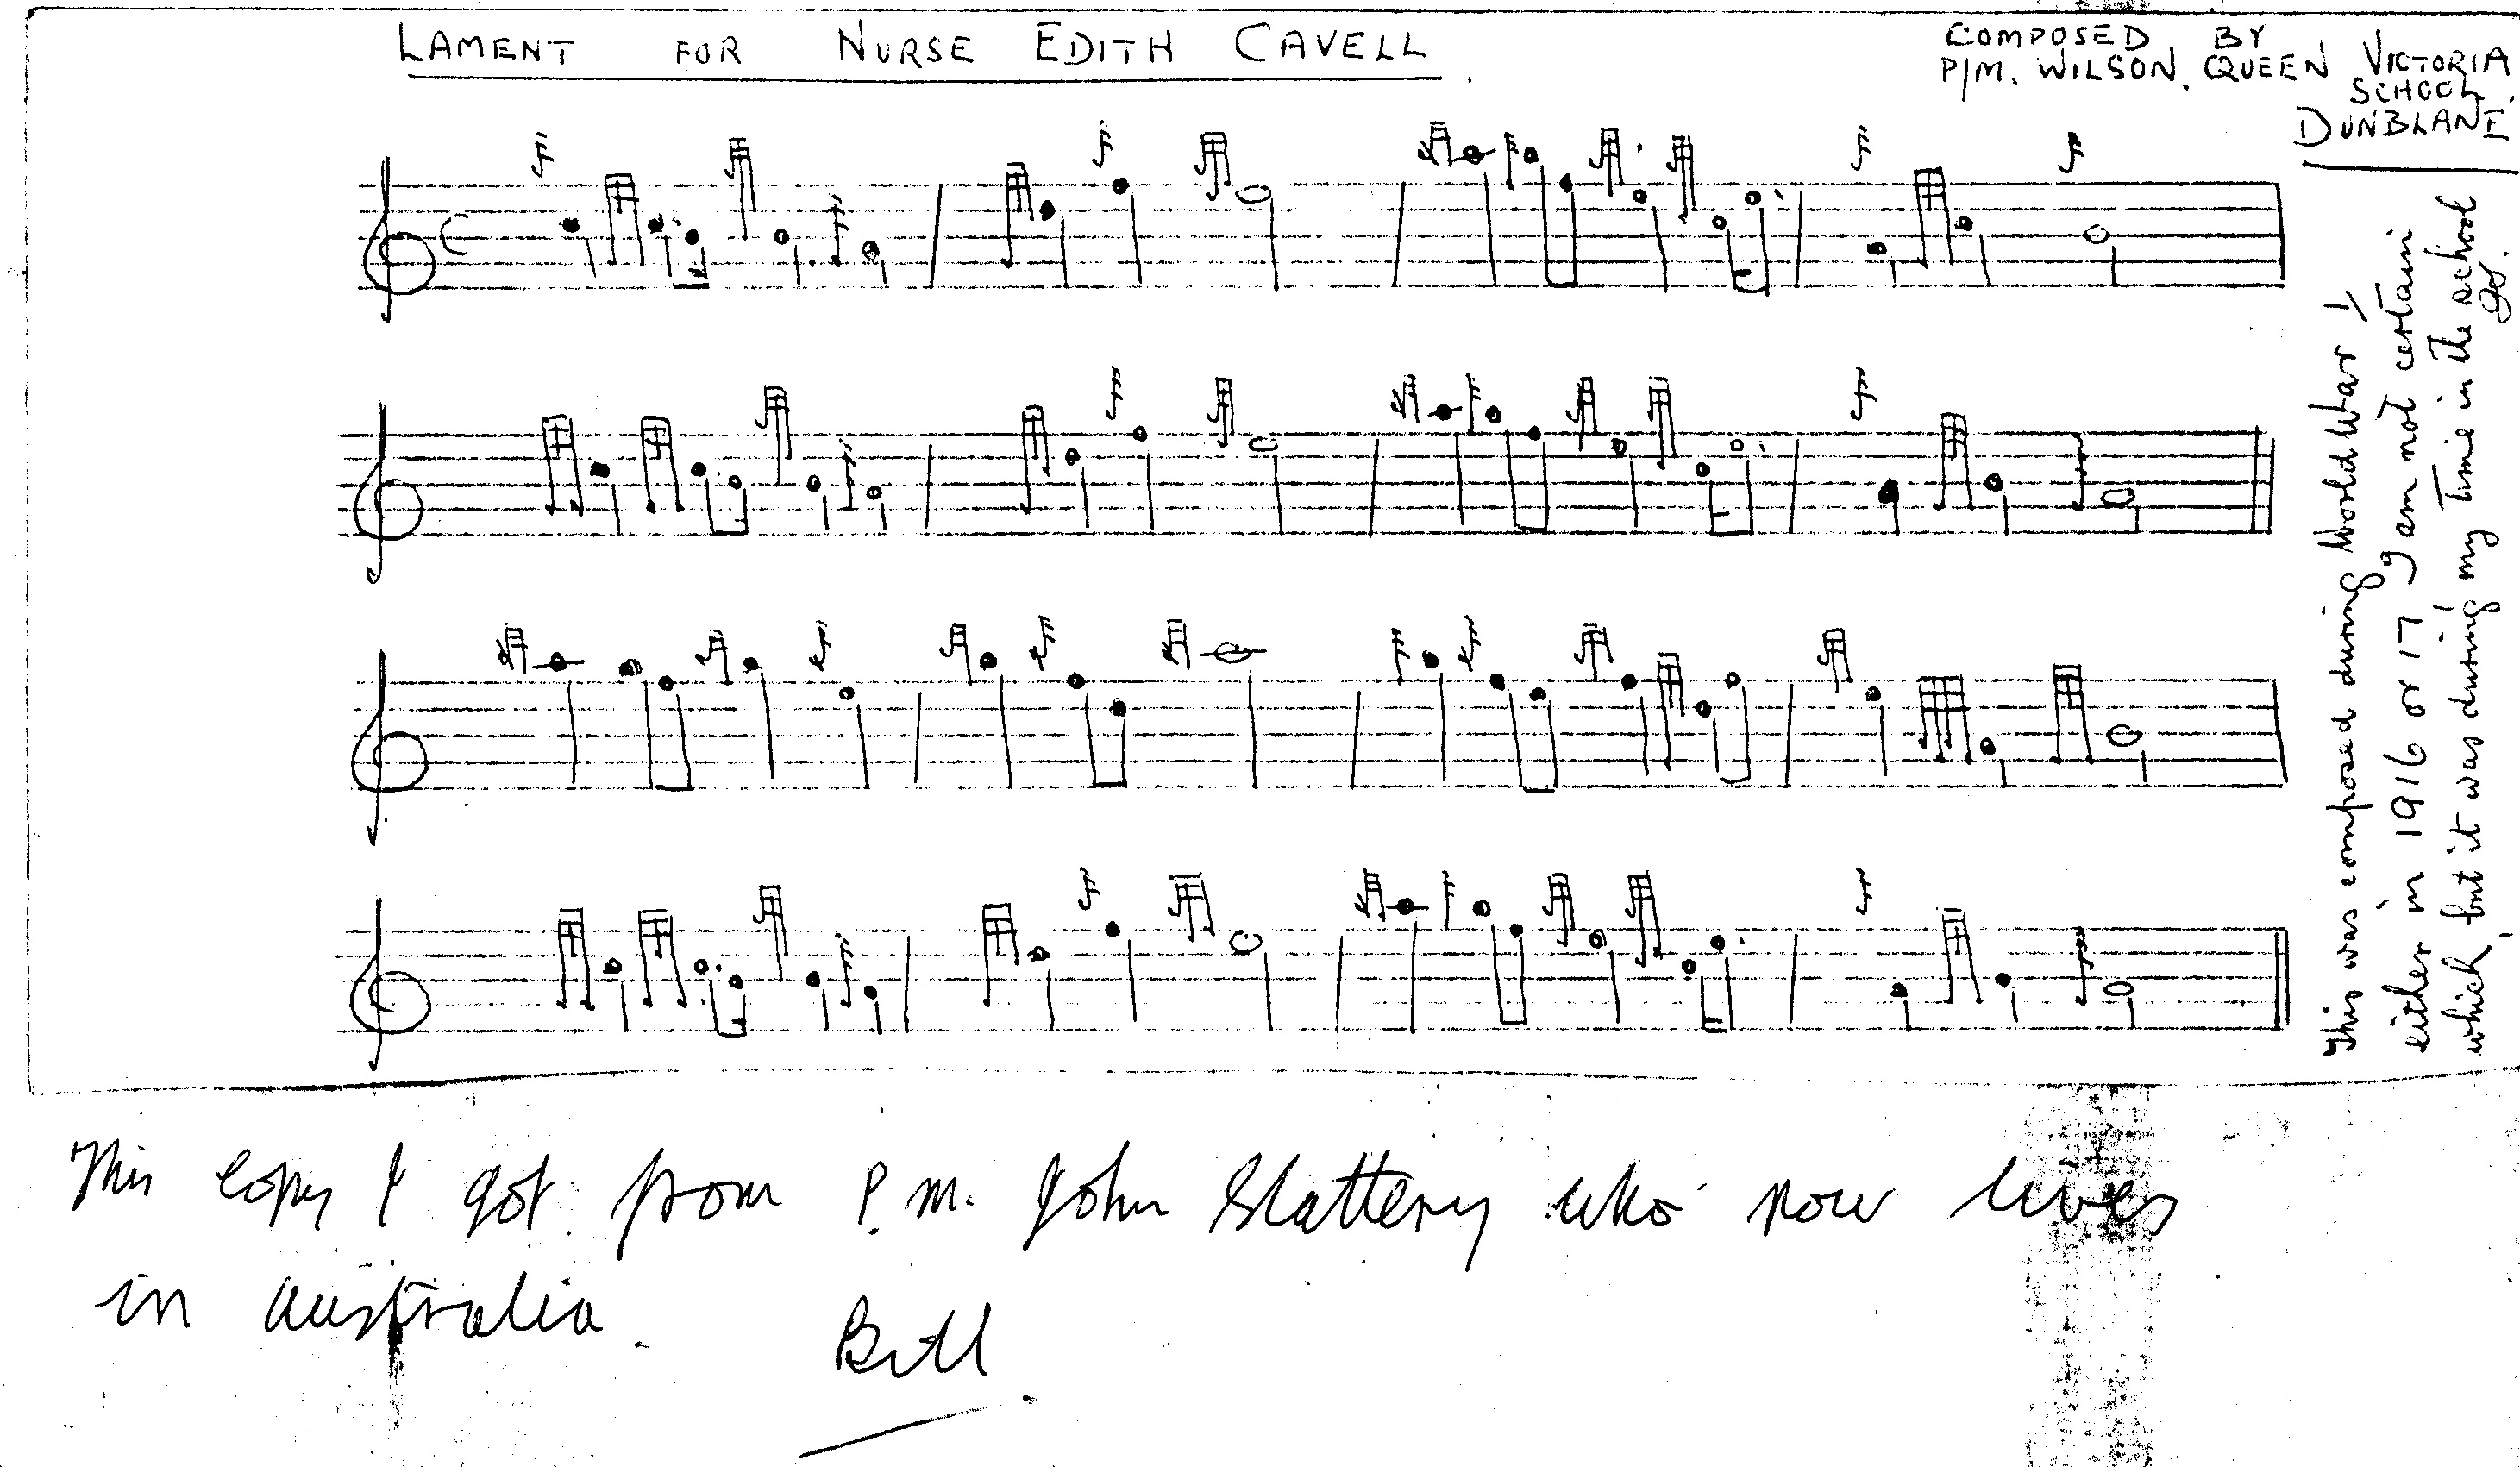 LAMENT FOR NURSE EDITH CAVELL.
COMPOSED BY
P/M. WILSON. QUEEN VICTORIA
SCHOOL.
DUNBLANE
This was composed during World War 1
either in 1916 or 17 I am not certain
which, but it was during my time in the school
This copy I got from P.M. John Slattery who now lives
in Australia.
Bill